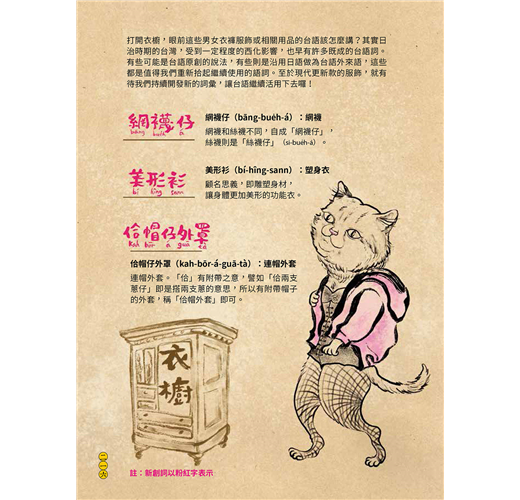 打開衣櫥，眼前這些男女衣褲服飾或相關用品的台語該怎麼講？其實日
治時期的台灣，受到一定程度的西化影響，也早有許多既成的台語詞。
有些可能是台語原創的說法，有些則是沿用日語做為台語外來語，這些
都是值得我們重新拾起繼續使用的語詞。至於現代更新款的服飾，就有
待我們持續開發新的詞彙，讓台語繼續活用下去囉！
網襪仔
bāng bue̍h á
網襪仔（bāng-bue̍h-á）：網襪
網襪和絲襪不同，自成「網襪仔」，
絲襪則是「絲襪仔」（si-bue̍h-á）。
美形衫
bí hîng sann
美形衫（bí-hîng-sann）：塑身衣
顧名思義，即雕塑身材，
讓身體更加美形的功能衣。
佮帽仔外罩
kah bō á guā tà
佮帽仔外罩（kah-bō-á-guā-tà）：連帽外套
連帽外套。「佮」有附帶之意，譬如「佮兩支
蔥仔」即是搭兩支蔥的意思，所以有附帶帽子
的外套，稱「佮帽外套」即可。
衣櫥
二一六
註：新創詞以粉紅字表示